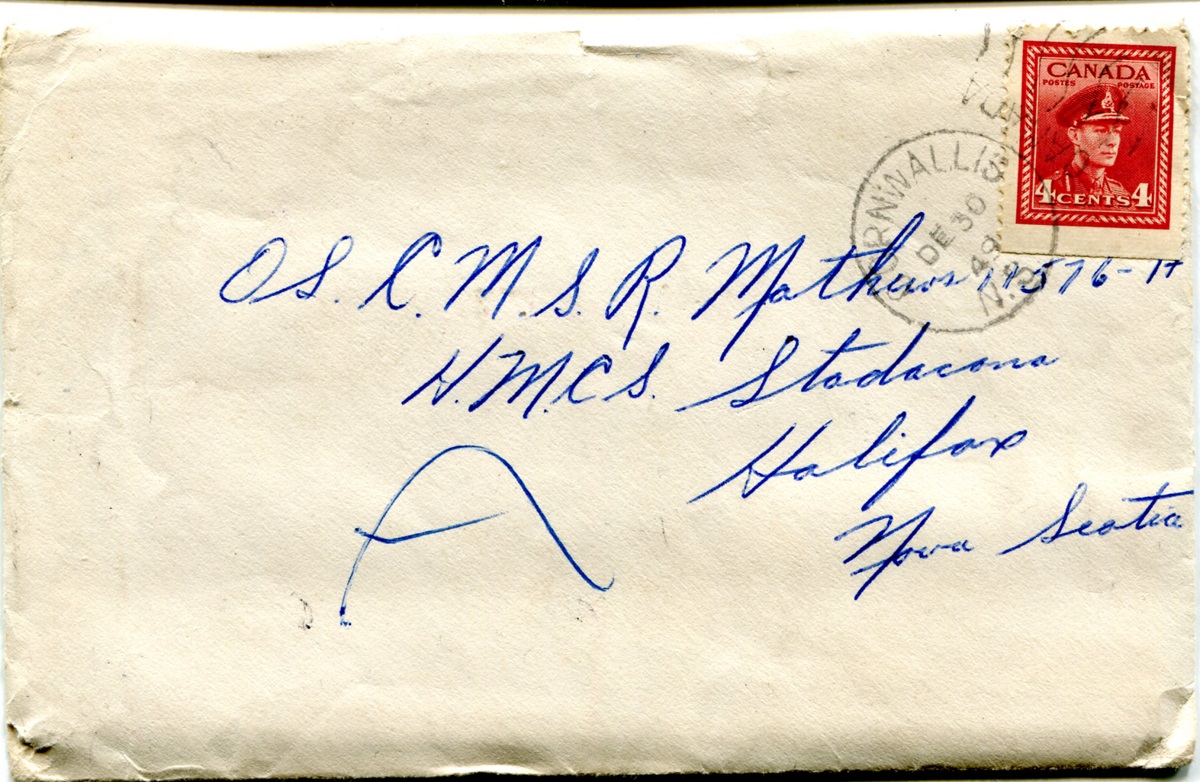 CANADA
POSTES POSTAGE
4 CENTS 4
CORNWALLIS
DE 30
49
N.S.
OS. C. M. S. R. Mathews 11576-H
H.M.C.S. Stadacona
Halifax
Nova Scotia